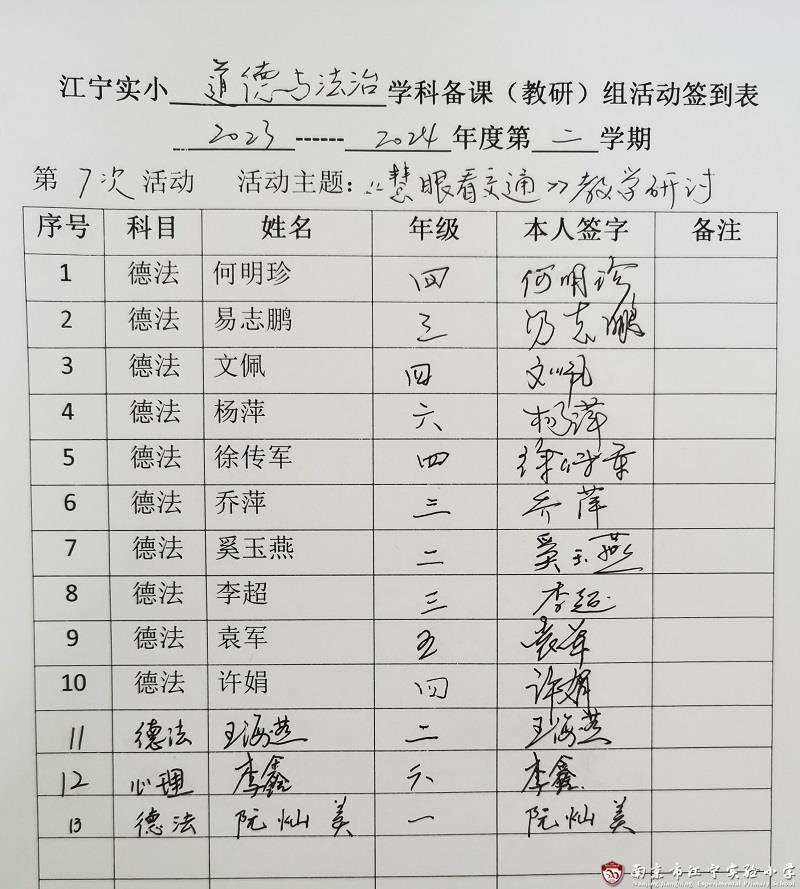 江宁实小 道德与法治 学科备课（教研）组活动签到表
2023------2024年度第二学期
第7次活动 活动主题：《慧眼看交通》教学研讨
序号 科目 姓名 年级 本人签字 备注
1 德法 何明珍 四 何明珍
2 德法 易志鹏 三 易志鹏
3 德法 文佩 四 文佩
4 德法 杨萍 六 杨萍
5 德法 徐传军 四 徐传军
6 德法 乔萍 三 乔萍
7 德法 奚玉燕 二 奚玉燕
8 德法 李超 三 李超
9 德法 袁军 五 袁军
10 德法 许娟 四 许娟
11 德法 王海燕 二 王海燕
12 心理 李鑫 六 李鑫
13 德法 阮灿美 一 阮灿美
南京市江宁实验小学
Nanjing Jiangning Experimental Primary School